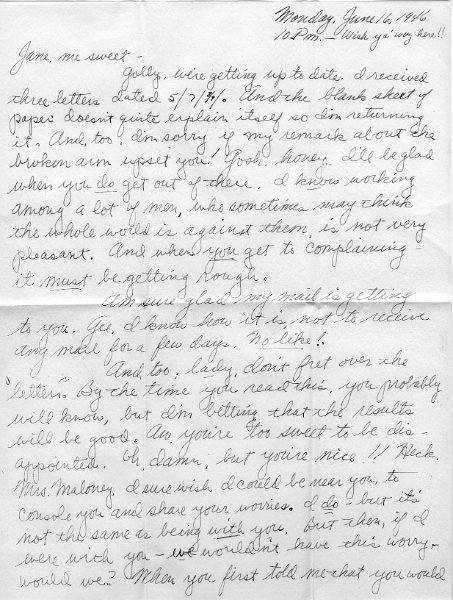 Monday, June 16, 1946
10 P.m. — Wish ya' wuz here!!
Jane, me sweet —
Golly, we're getting up to date. I received
three letters dated 5/7/46. And the blank sheet of
paper doesn't quite explain itself so I'm returning
it. And, too, I'm sorry if my remark about the
broken arm upset you! Gosh, honey, I'll be glad
when you do get out of there. I know working
among a lot of men, who sometimes may think
the whole world is against them, is not very
pleasant. And when you get to complaining —
it must be getting rough.
Am sure glad my mail is getting
to you. Gee, I know how it is, not to receive
any mail for a few days. No like!!
And, too, lady, don't fret over the
"letters". By the time you read this, you probably
will know, but I'm betting that the results
will be good. Aw, you're too sweet to be dis-
appointed. Oh, damn, but you're nice!! Heck,
Mrs. Maloney, I sure wish I could be near you, to
console you and share your worries. I do — but it's
not the same as being with you. But then, if I
were with you — we wouldn't have this worry —
would we? When you first told me that you would